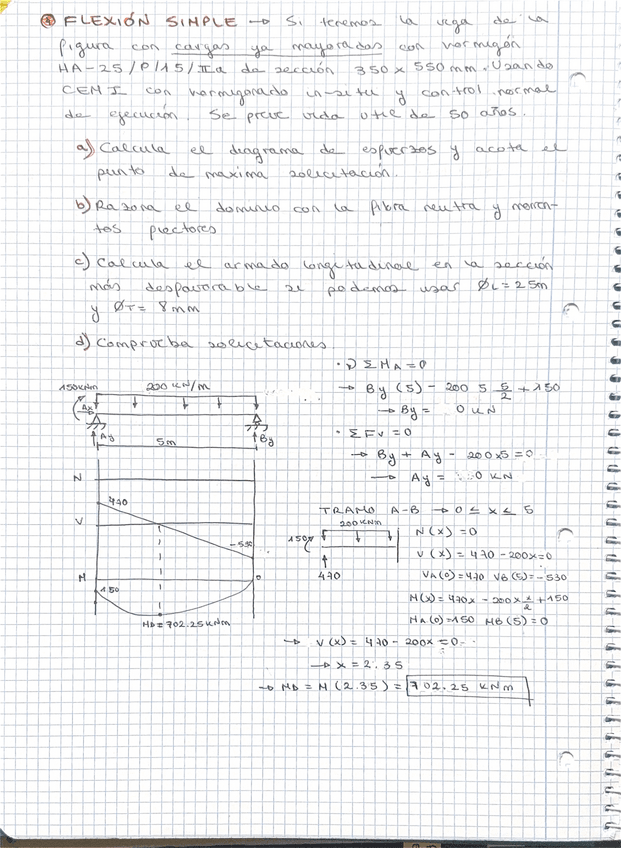 ④ FLEXIÓN SIMPLE → Si tenemos la viga de la
figura con cargas ya mayoradas con hormigón
HA-25/P/15/IIa de sección 350 x 550 mm. Usando
CEM I con hormigonado in-situ y control normal
de ejecución. Se preve vida util de 50 años.
a) Calcula el diagrama de esfuerzos y acota el
punto de maxima solicitación.
b) Razona el dominio con la fibra neutra y momen-
tos flectores
c) Calcula el armado longitudinal en la sección
más desfavorable si podemos usar ØL = 25m
y ØT = 8 mm
d) Comprueba solicitaciones.
150 kNm
200 kN/m
Ax
Ay
5m
By
· ΣMA = 0
→ By (5) - 200 5 5/2 + 150
→ By = 0 kN
· ΣFv = 0
→ By + Ay - 200x5 = 0
→ Ay = 0 kN
N
V
470
-530
M
150
0
MD = 702.25 kNm
TRAMO A-B → 0 ≤ x ≤ 5
200 kNm
150
470
N(x) = 0
V(x) = 470 - 200x = 0
VA(0) = 470 VB(5) = -530
M(x) = 470x - 200x x/2 + 150
MA(0) = 150 MB(5) = 0
→ V(x) = 470 - 200x = 0
→ x = 2.35
→ MD = M(2.35) = 702.25 kNm